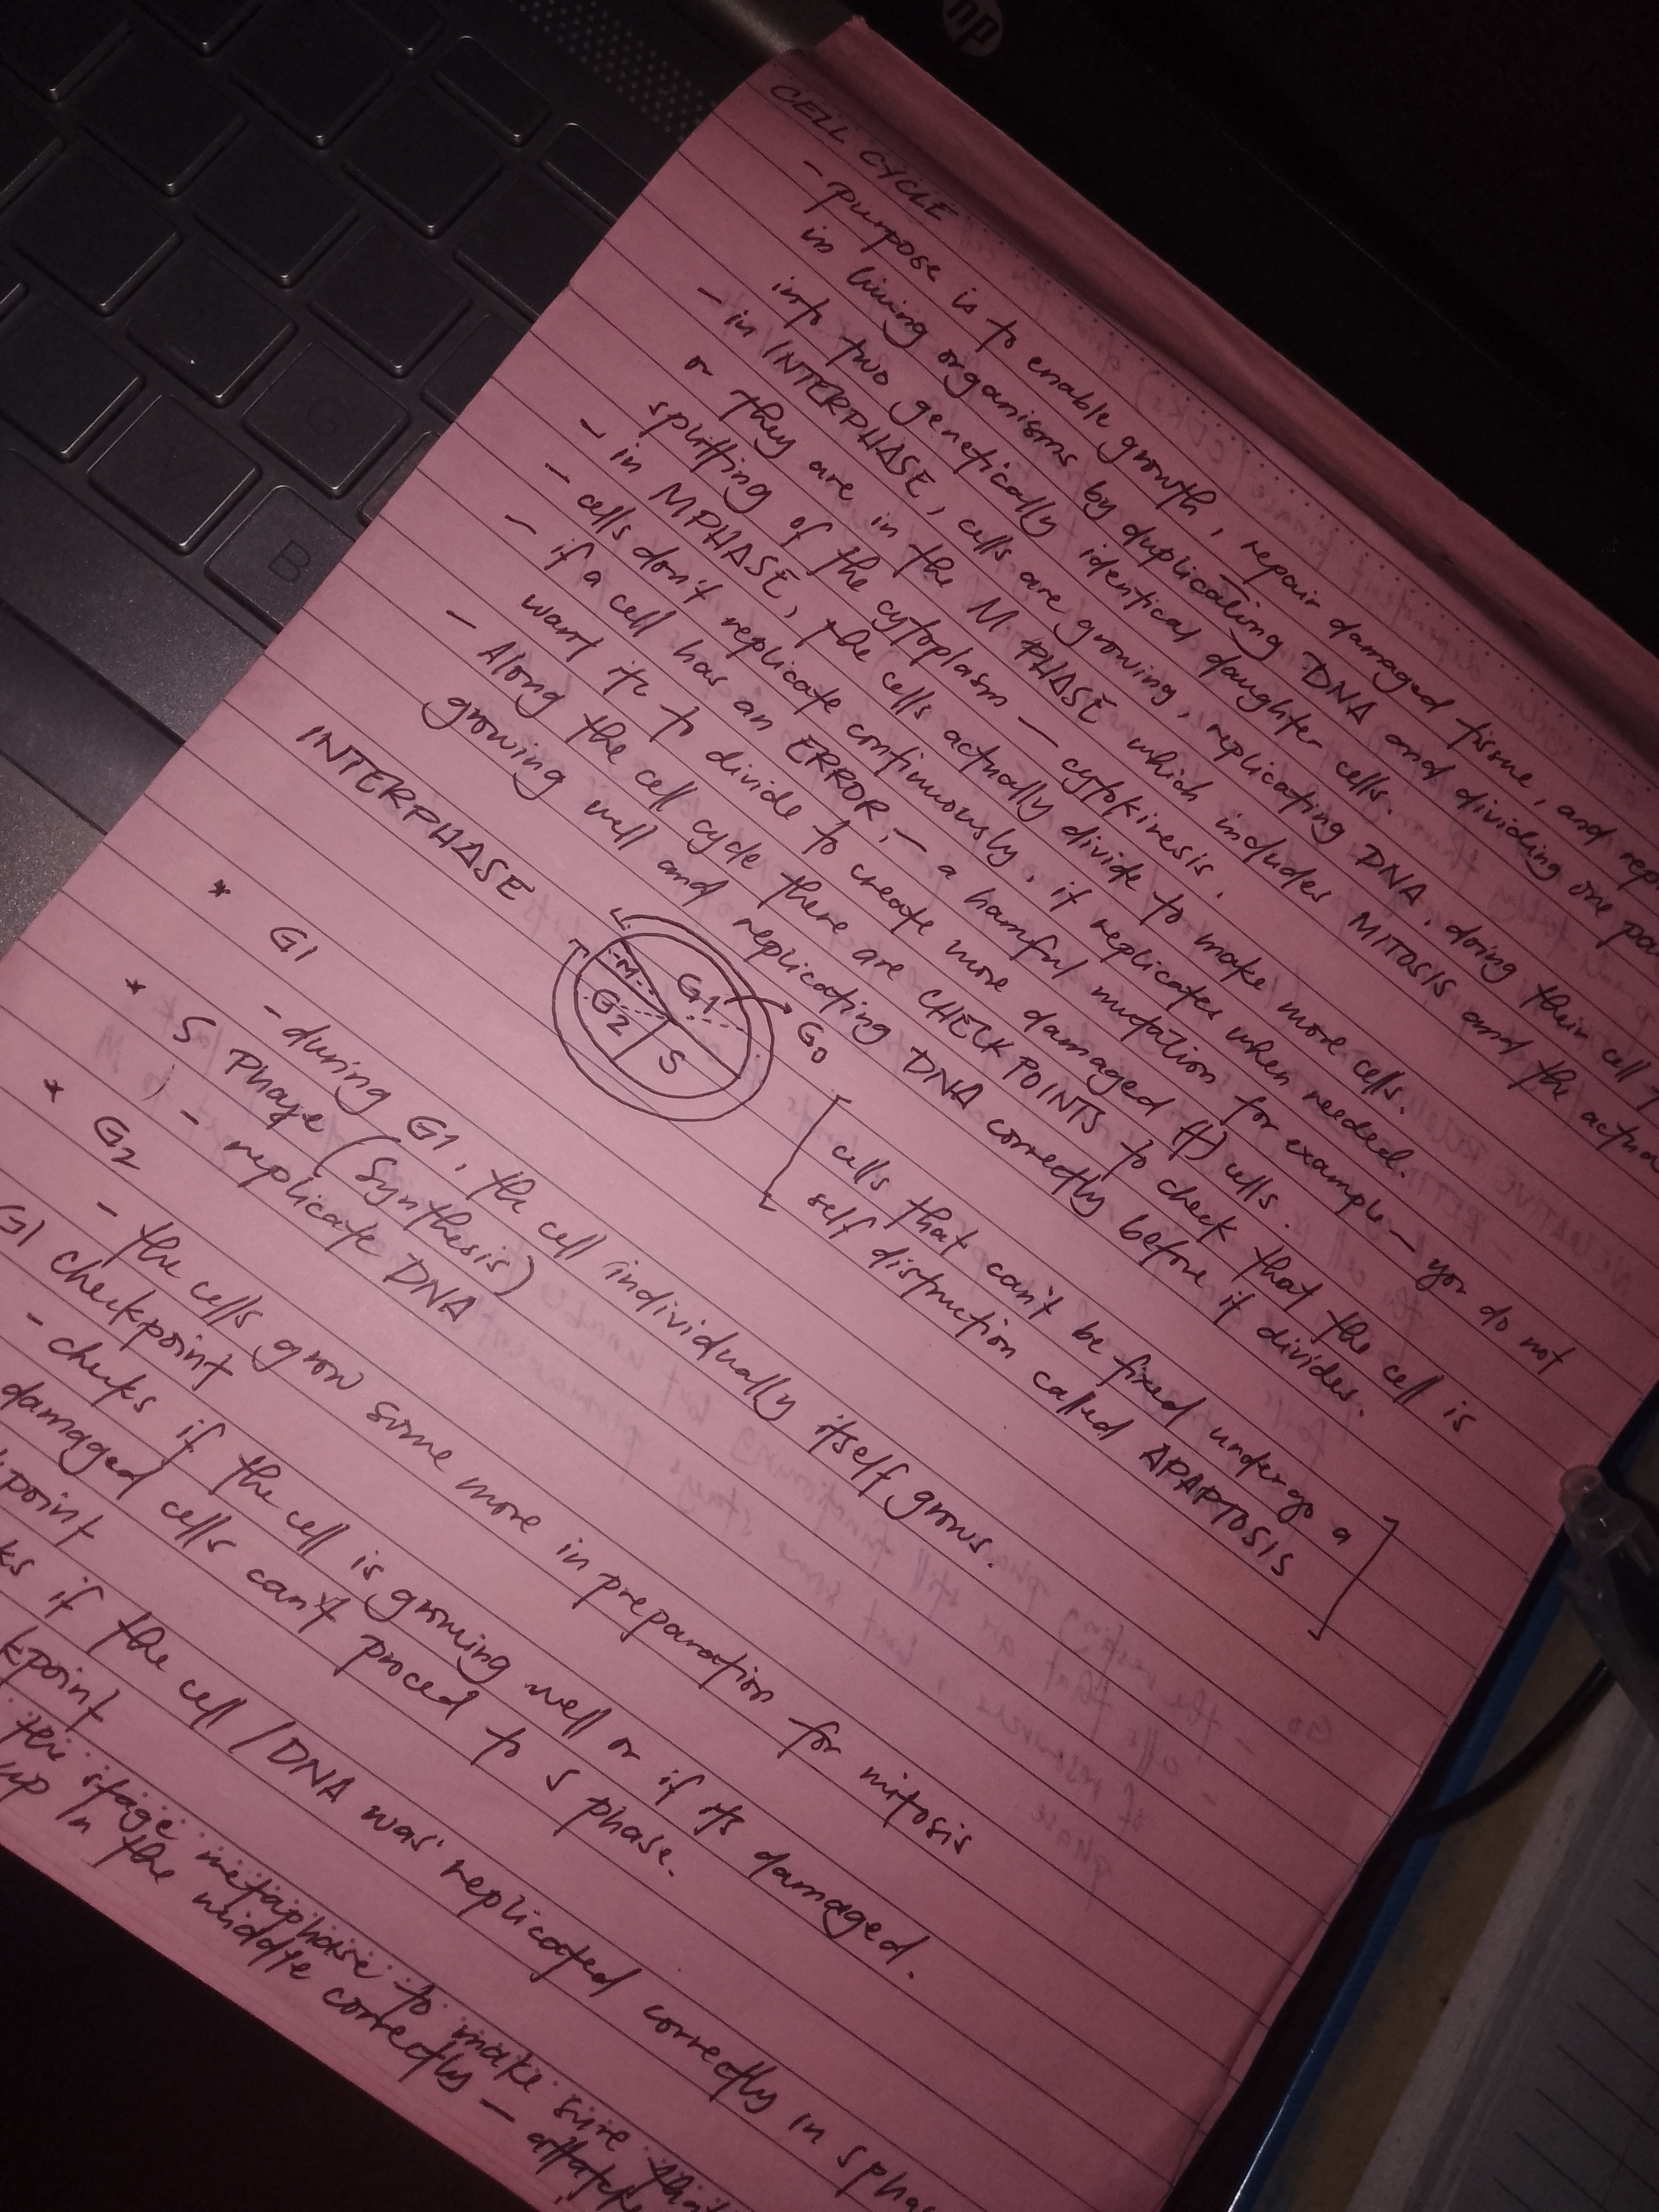 hp
B
CELL CYCLE
- purpose is to enable growth, repair damaged tissue, and
in living organisms by duplicating DNA and dividing one
into two genetically identical daughter cells.
- in INTERPHASE, cells are growing, replicating DNA, doing their cell
or they are in the M PHASE which includes MITOSIS and the
splitting of the cytoplasm - cytokinesis.
- in MPHASE, the cells actually divide to make more cells.
- cells don't replicate continuously, it replicates when needed.
- if a cell has an ERROR, - a harmful mutation for example - you do not
want it to divide to create more damaged cells.
- Along the cell cycle there are CHECK POINTS to check that the cell is
growing well and replicating DNA correctly before it divides.
INTERPHASE
M
G1
G2
S
G0
[ cells that can't be fixed undergo a
self distruction called APAPTOSIS ]
* G1
- during G1, the cell individually itself grows.
* S Phase (Synthesis)
- replicate DNA
* G2
- the cells grow some more in preparation for mitosis
G1 checkpoint
- checks if the cell is growing well or if its damaged.
damaged cells can't proced to S phase.
if the cell / DNA was replicated correctly in S
the stage metaphase to make sure
up in the middle correctly -